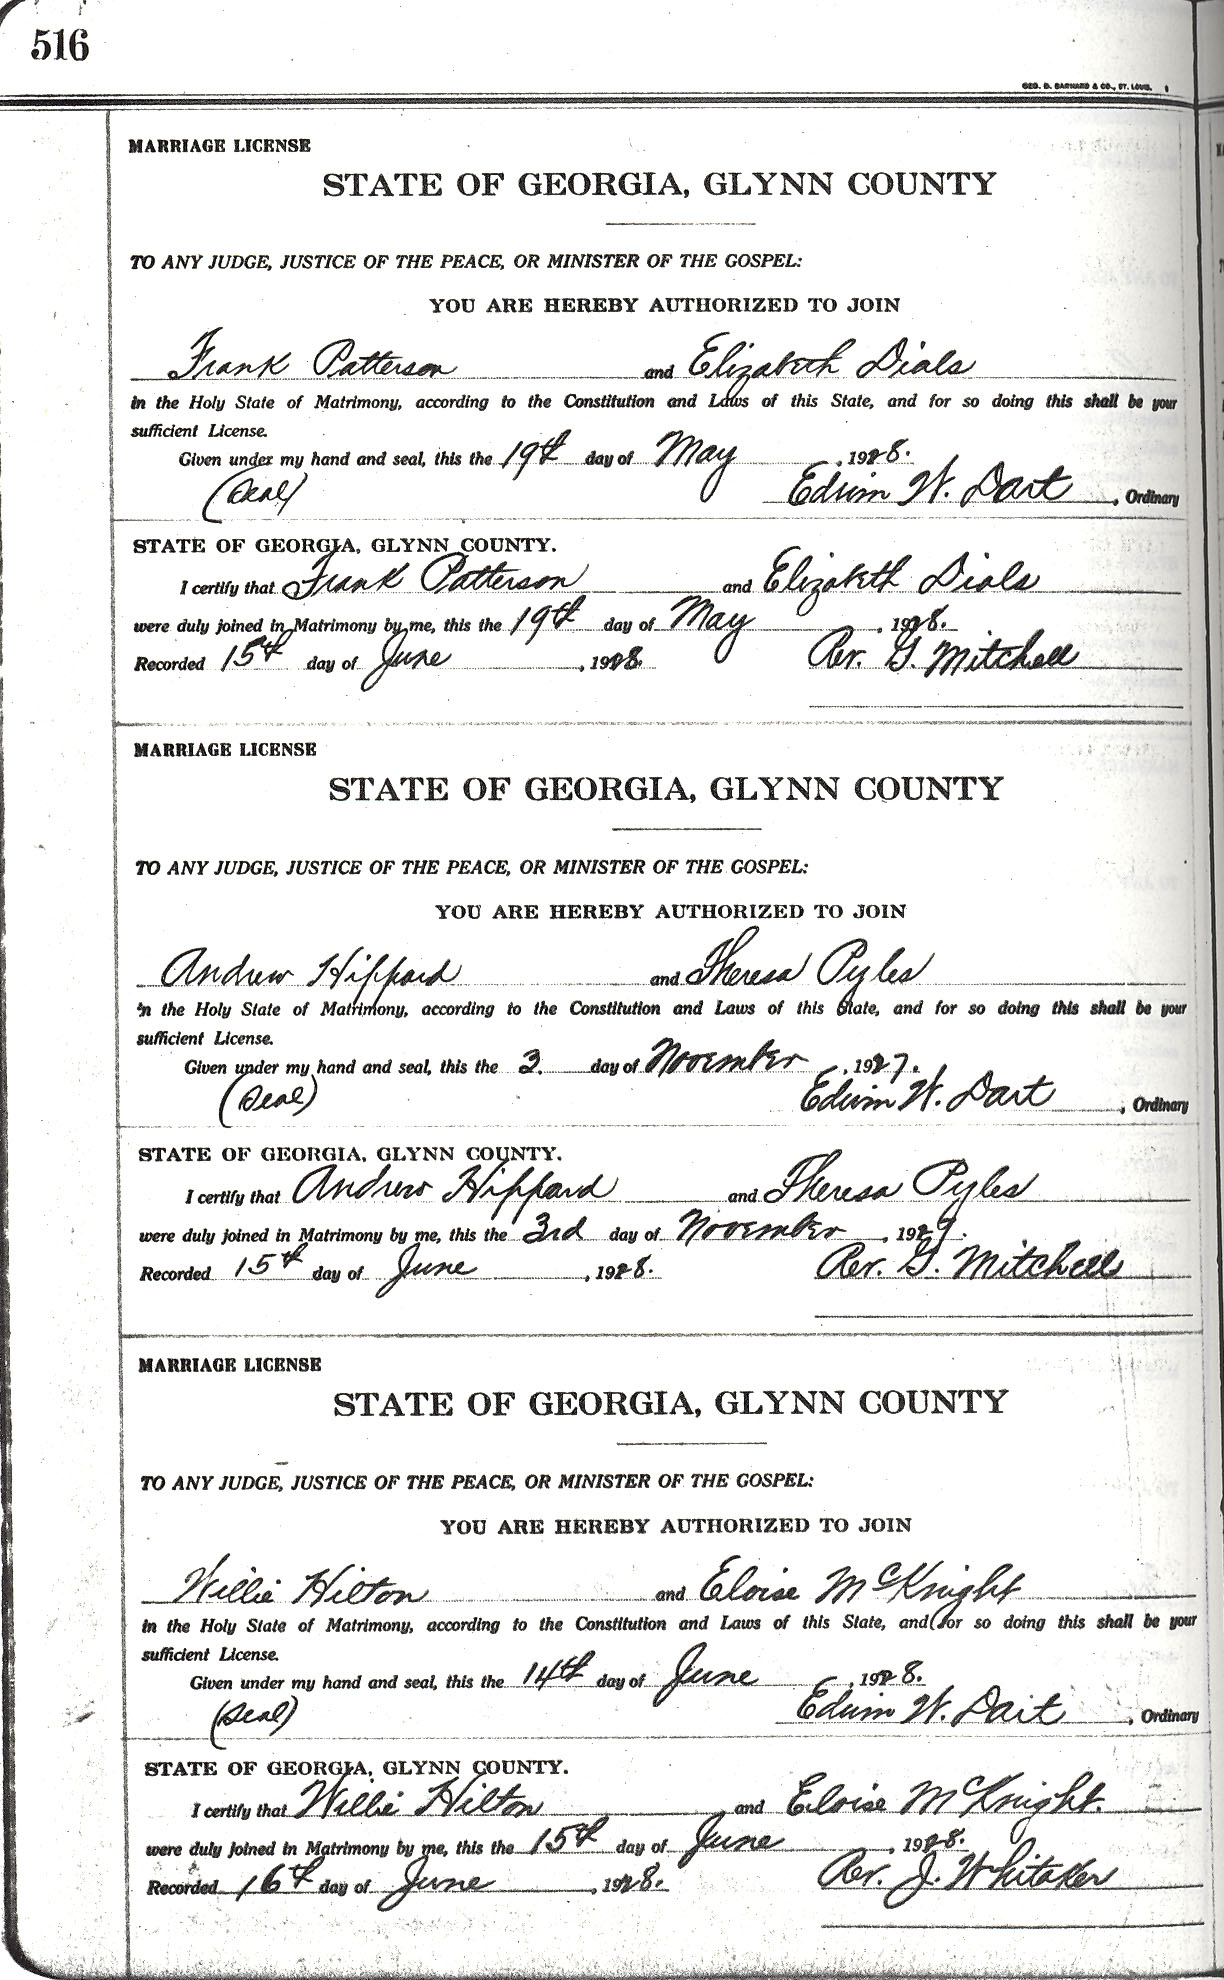 516
GEO. D. BARNARD & CO., ST. LOUIS.
MARRIAGE LICENSE
STATE OF GEORGIA, GLYNN COUNTY
TO ANY JUDGE, JUSTICE OF THE PEACE, OR MINISTER OF THE GOSPEL:
YOU ARE HEREBY AUTHORIZED TO JOIN
Frank Patterson and Elizabeth Dials
in the Holy State of Matrimony, according to the Constitution and Laws of this State, and for so doing this shall be your
sufficient License.
Given under my hand and seal, this the 19th day of May, 1928.
(Seal) Edwin W. Dart, Ordinary
STATE OF GEORGIA, GLYNN COUNTY.
I certify that Frank Patterson and Elizabeth Dials
were duly joined in Matrimony by me, this the 19th day of May, 1928.
Recorded 15th day of June, 1928. Rev. G. Mitchell
MARRIAGE LICENSE
STATE OF GEORGIA, GLYNN COUNTY
TO ANY JUDGE, JUSTICE OF THE PEACE, OR MINISTER OF THE GOSPEL:
YOU ARE HEREBY AUTHORIZED TO JOIN
Andrew Hippard and Theresa Pyles
in the Holy State of Matrimony, according to the Constitution and Laws of this State, and for so doing this shall be your
sufficient License.
Given under my hand and seal, this the 3. day of November, 1927.
(Seal) Edwin W. Dart, Ordinary
STATE OF GEORGIA, GLYNN COUNTY.
I certify that Andrew Hippard and Theresa Pyles
were duly joined in Matrimony by me, this the 3rd day of November, 1927.
Recorded 15th day of June, 1928. Rev. G. Mitchell
MARRIAGE LICENSE
STATE OF GEORGIA, GLYNN COUNTY
TO ANY JUDGE, JUSTICE OF THE PEACE, OR MINISTER OF THE GOSPEL:
YOU ARE HEREBY AUTHORIZED TO JOIN
Willie Hilton and Eloise McKnight
in the Holy State of Matrimony, according to the Constitution and Laws of this State, and for so doing this shall be your
sufficient License.
Given under my hand and seal, this the 14th day of June, 1928.
(Seal) Edwin W. Dart, Ordinary
STATE OF GEORGIA, GLYNN COUNTY.
I certify that Willie Hilton and Eloise McKnight.
were duly joined in Matrimony by me, this the 15th day of June, 1928.
Recorded 16th day of June, 1928. Rev. J. Whitaker